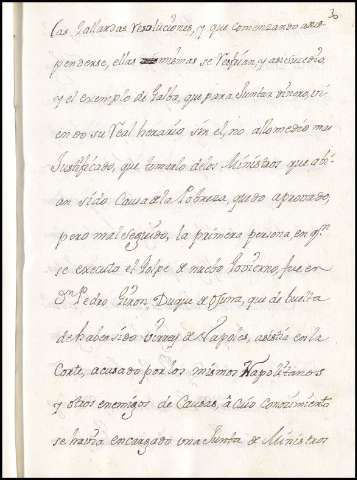 30
las gallardas resoluciones, y que comenzando a sus
penderse, ellas mismas se resfrian, y
y el exemplo de Galba, que para Juntar dinero, vi
endo su Real herario sin el, no allo medio mas
Justificado, que tomarlo de los Ministros que abi
an sido Causa de la Pobreza, quedo aprovado,
pero mal seguido, la primera persona, en qn
se executo el Golpe de nuebo Govierno, fue en
Dn Pedro Giron, Duque de Osuna, que de buelta
de haber sido Virrey de Napoles, asistia en la
Corte, acusado por los mismos Napolitanos
y otros enemigos de Causas, â cuio conocimiento
se havia encargado una Junta de Ministros